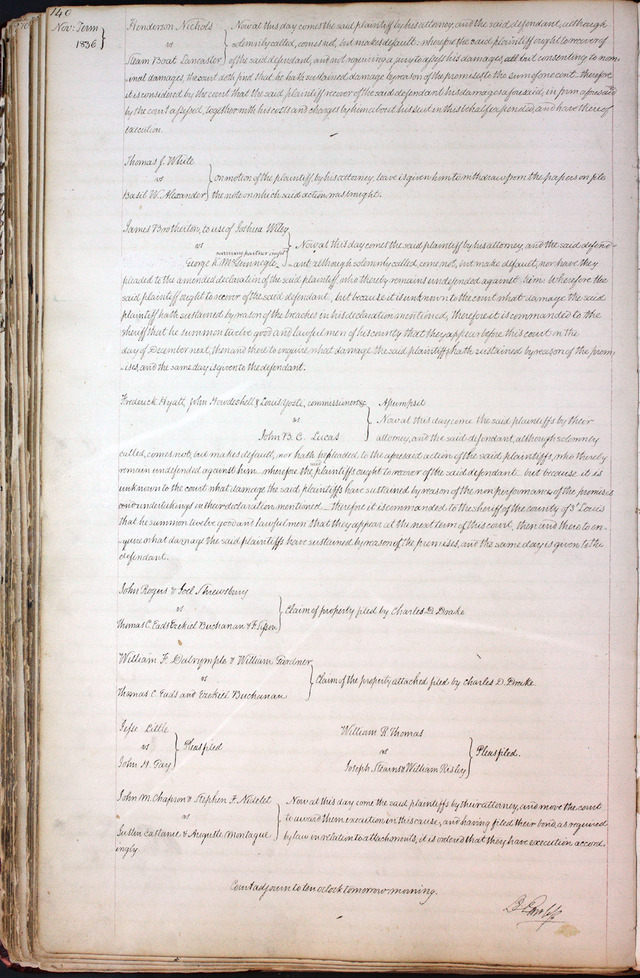 140
Nov. Term
1836
Henderson Nichols
vs
Steam Boat Lancaster
Now at this day comes the said plaintiff by his attorney, and the said defendant, although
solemnly called, comes not, but makes default: wherefore the said plaintiff ought to recover of
of the said defendant, and not requiring a jury to assess his damages, all but consenting to nom-
inal damages, the court doth find that he hath sustained damage by reason of the premises to the sum of one cent. therefore
it is considered by the court that the said plaintiff recover of the said defendant his damages aforesaid, in form aforesaid
by the court assessed, together with his costs and charges by him about his suit in this behalf expended, and have thereof
execution.
Thomas J. White
vs
Basil W. Alexander
on motion of the plaintiff by his attorney, leave is given him to withdraw from the papers on file
the note on which said action was brought.
James Brotherton, to use of Joshua Wiley
vs
surviving partner
George K. McGunnegle
Now at this day comes the said plaintiff by his attorney, and the said defend-
ant although solemnly called, come not, but make default, nor have they
pleaded to the amended declaration of the said plaintiff, who thereby remains undefended against him: Wherefore the
said plaintiff ought to recover of the said defendant, but because it is unknown to the court what damage the said
plaintiff hath sustained by reason of the breaches in his declaration mentioned, therefore it is commanded to the
sheriff that he summon twelve good and lawful men of his county that they appear before this court on the
day of December next, then and there to enquire what damage the said plaintiffs hath sustained by reason of the prem-
ises, and the same day is given to the defendant.
Frederick Hyatt, John Howdeshell & Louis Yosti, commissioners &c
vs
John B. C. Lucas
Assumpsit
Now at this day come the said plaintiffs by their
attorney, and the said defendant, although solemnly
called, comes not, but makes default, nor hath he pleaded to the aforesaid action of the said plaintiffs, who thereby
remain undefended against him wherefore the said plaintiffs ought to recover of the said defendant but because it is
unknown to the court what damage the said plaintiffs have sustained by reason of the non performance of the promises
and undertakings in their declaration mentioned therefore it is commanded to the sheriff of the county of St Louis
that he summon twelve good and lawful men that they appear at the next term of this court, then and there to en-
quire what damage the said plaintiffs have sustained by reason of the premises, and the same day is given to the
defendant.
John Rogers & Joel Shrewsbury
vs
Thomas C. Eads Ezekiel Buchanan & F.
Claim of property filed by Charles D. Drake
William F. Dalrymple & William Gardner
vs
Thomas C. Eads and Ezekiel Buchanan
Claim of the property attached filed by Charles D. Drake.
Jesse Little
vs
John H. Gay
Pleas filed
William R Thomas
vs
Joseph Stearns & William Risley
Pleas filed.
John M. Chapron & Stephen F. Nidelet
vs
Justin Castanie & Auguste Montague
Now at this day come the said plaintiffs by their attorney, and move the court
to award them execution in this cause, and having filed their bond, as required
by law in relation to attachments, it is ordered that they have execution accord-
ingly.
Court adjourn to ten oclock tomorrow morning.